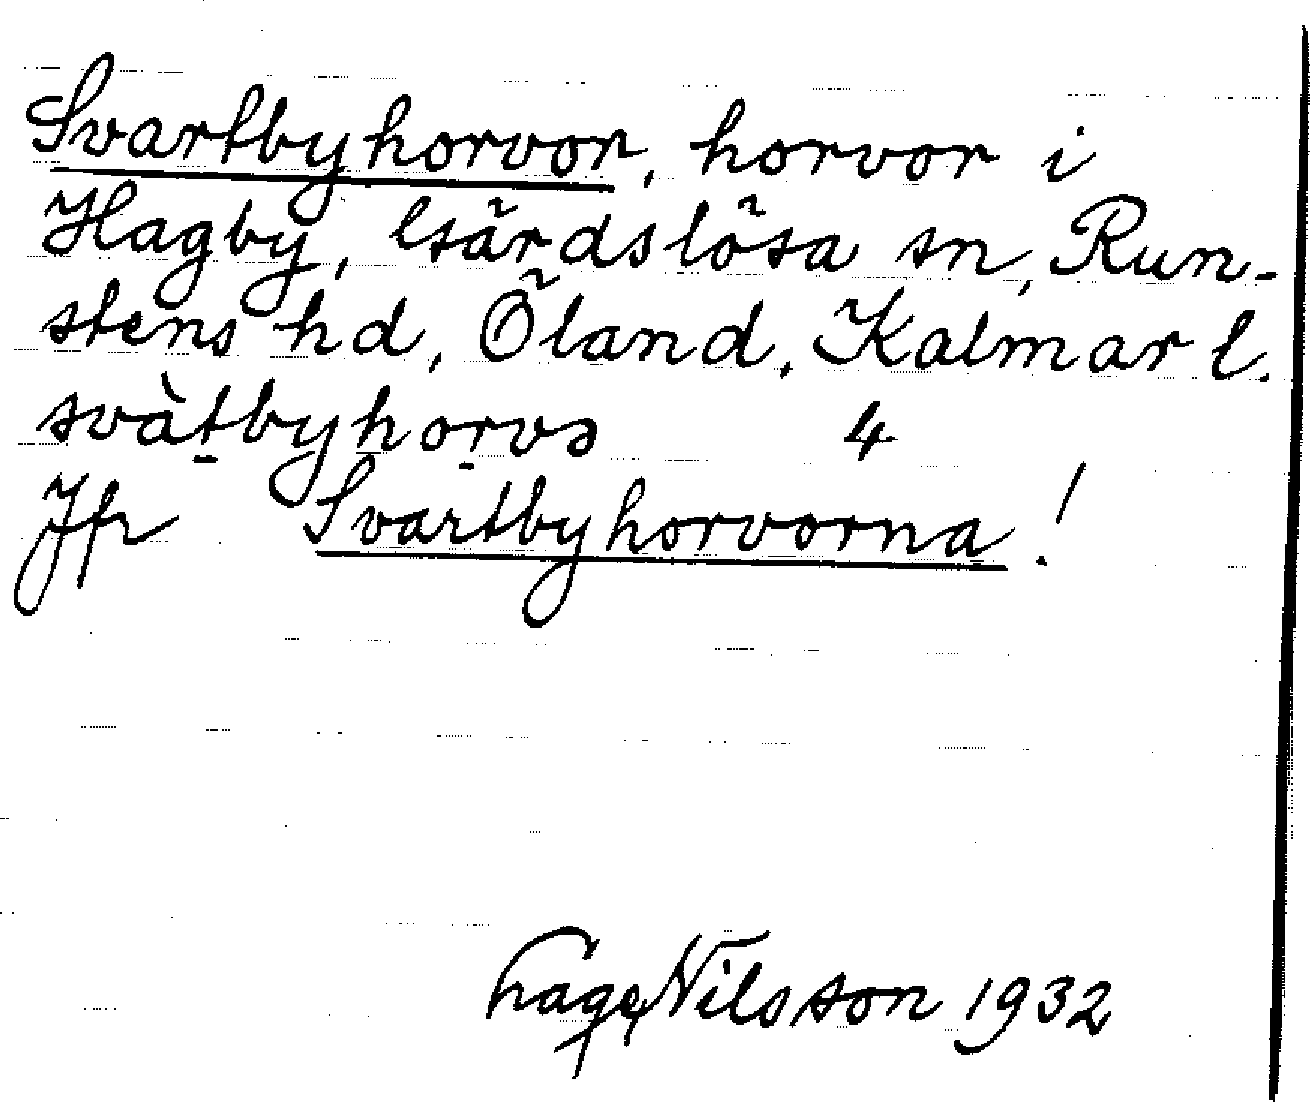 Svartbyhorvor, horvor i
Hagby, Gärdslösa sn, Run-
stens hd, Öland, Kalmar l.
svàtbyhorvə 4
Jfr Svartbyhorvorna!
Nilsson 1932